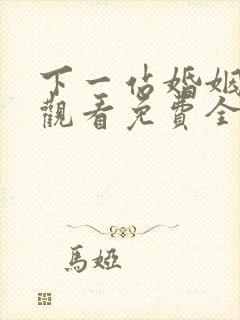 下一站婚姻
觀看免費全
馬婭